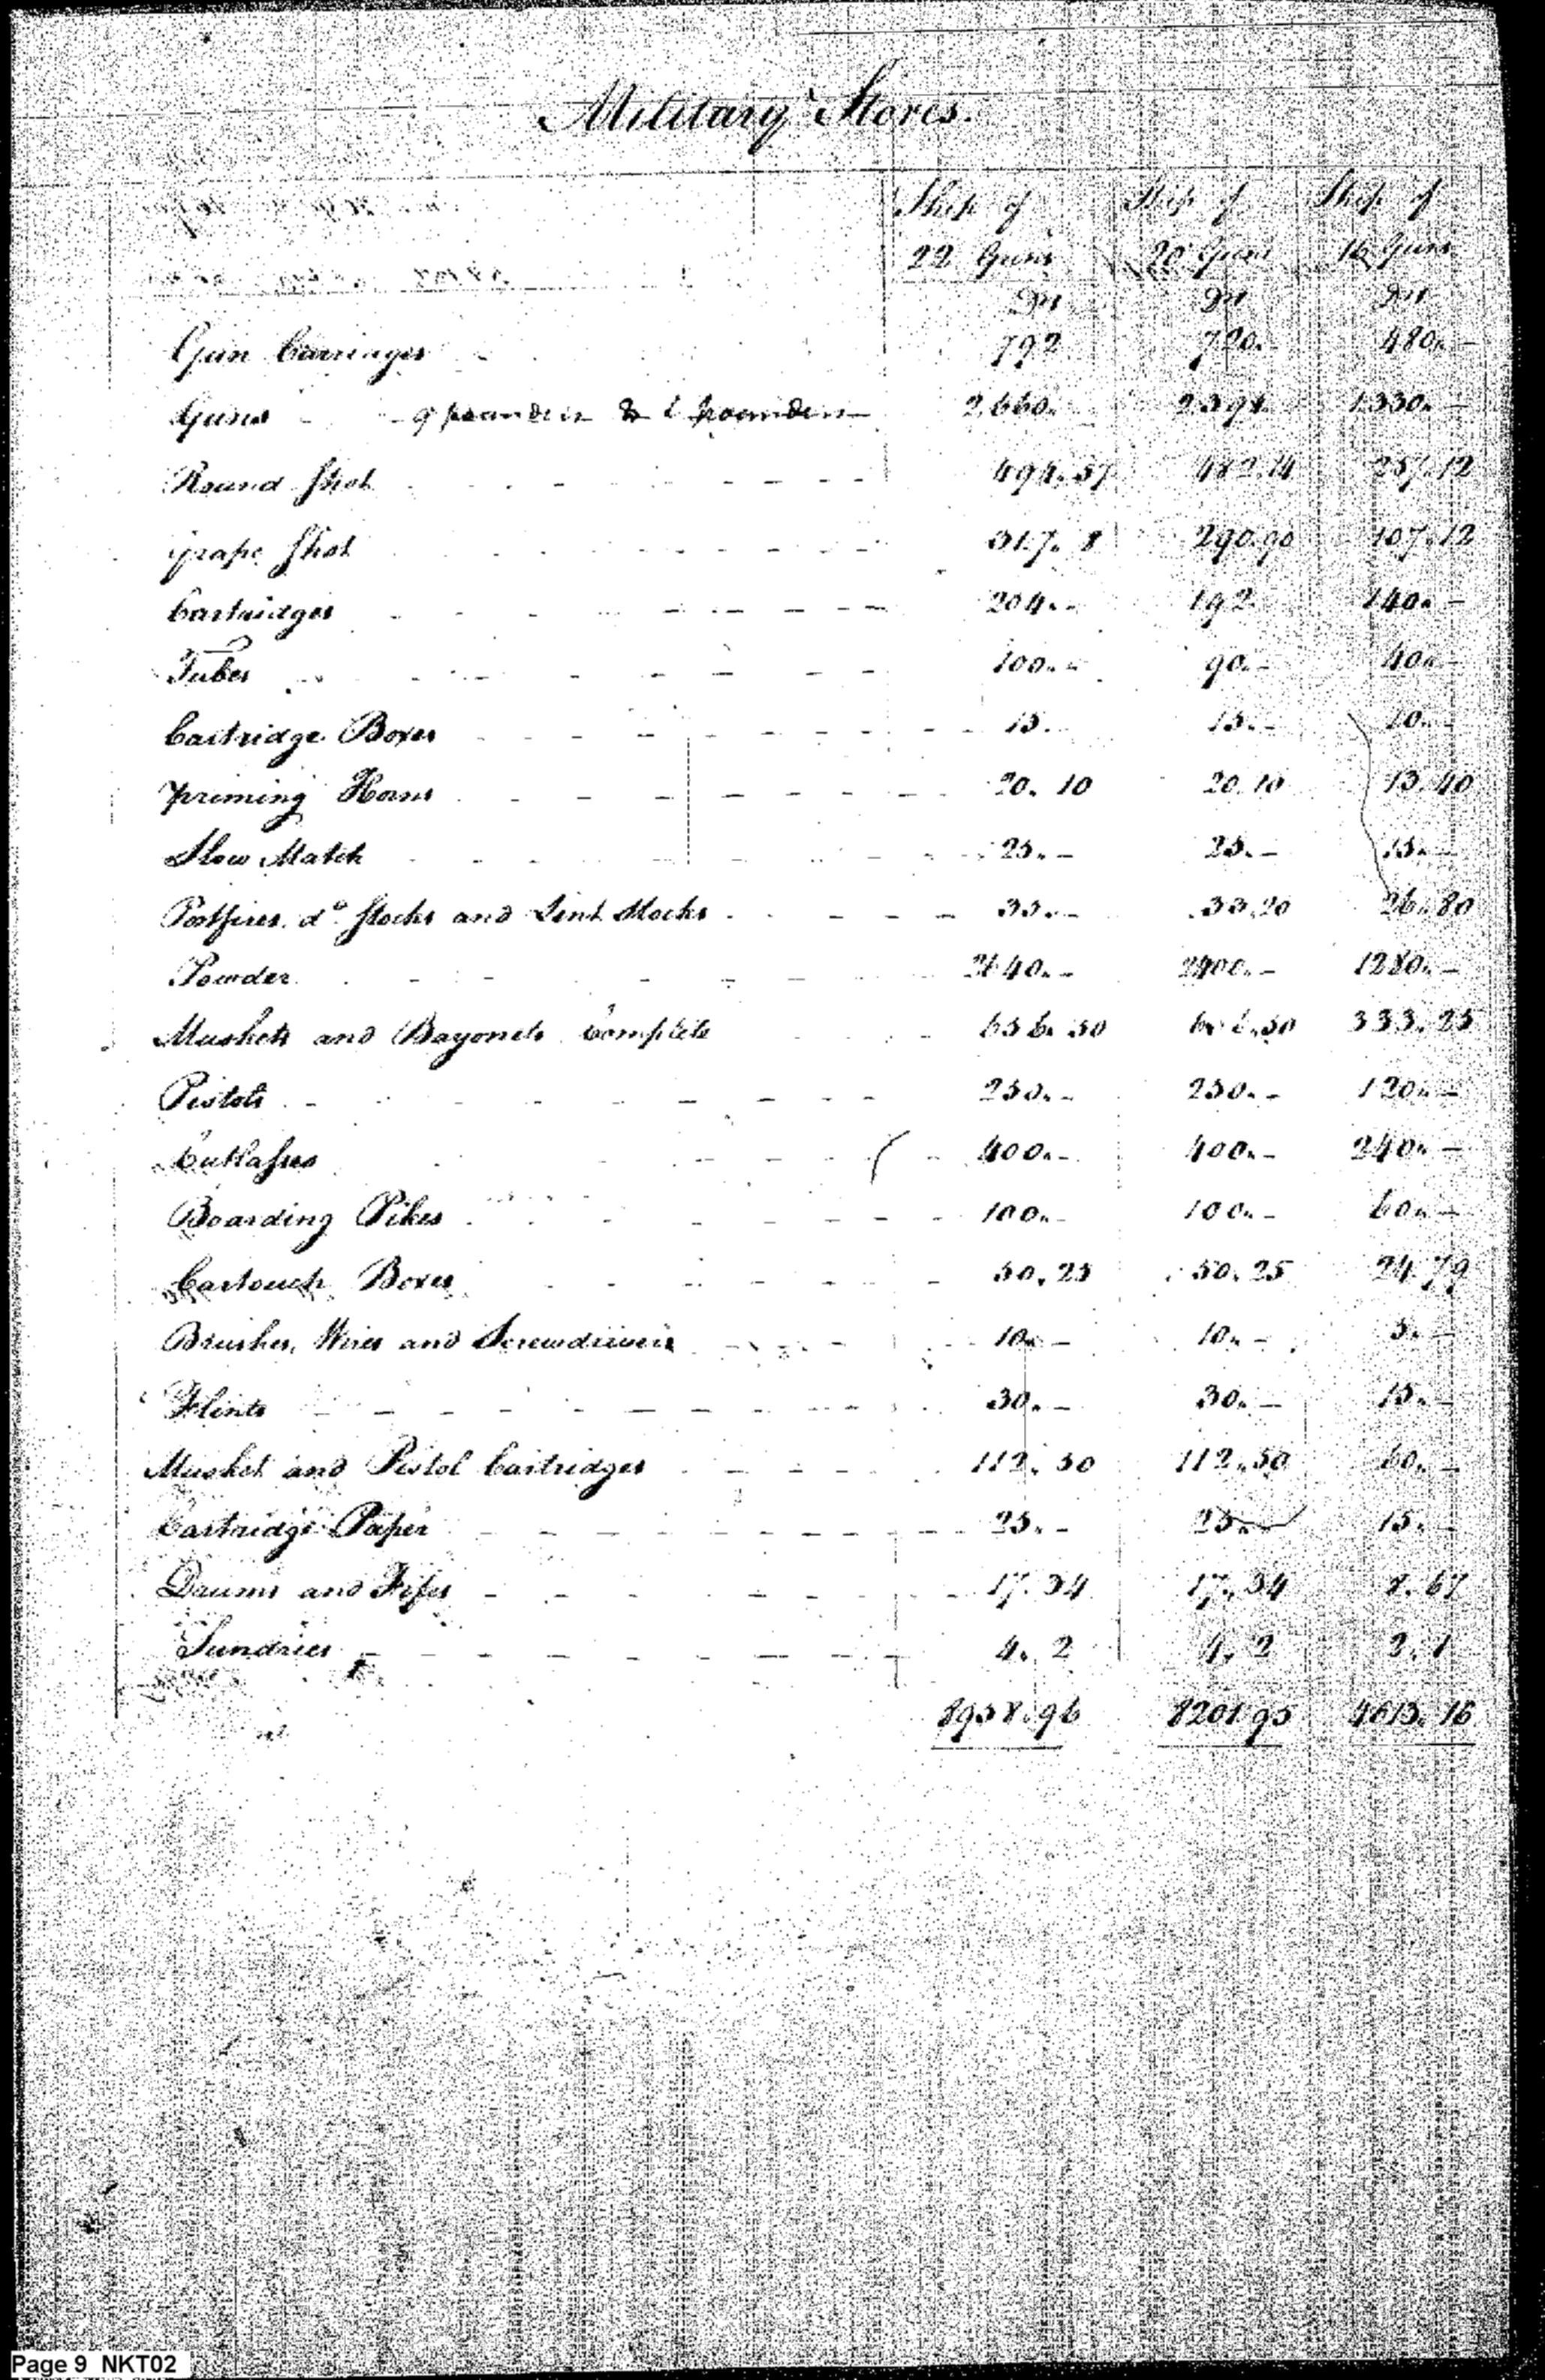 Military Stores.
Ship of Ship of Ship of
22 Guns 20 Guns 16 Guns
Gun Carriages 792 720.- 480.-
Guns 9 pounders & 6 pounders 2660. 2394. 1330.-
Round Shot 494.57 482.14 257.12
Grape Shot 317.8 290.90 107.12
Cartridges 204.- 192 140.-
Tubes 100.- 90.- 40.-
Cartridge Boxes 15. 15.- 10.-
Priming Horns 20.10 20.10 13.40
Slow Match 25.- 25.- 15.-
Portfires. do. Stocks and Lint Stocks 33.- 33.20 26.80
Powder 2640.- 2400.- 1280.-
Muskets and Bayonets Complete 656.50 606.50 333.25
Pistols 250.- 250.- 120.-
Cutlasses 400.- 400.- 240.-
Boarding Pikes 100.- 100.- 60.-
Cartouch Boxes 50.25 50.25 24.79
Brushes, Wires and Screwdrivers 10.- 10.- 5.-
Flints 30.- 30.- 15.-
Musket and Pistol Cartridges 112.50 112.50 60.-
Cartridge Paper 25.- 25.- 15.-
Drums and Fifes 17.34 17.34 8.67
Sundries 4.2 4.2 2.1
8958.96 8201.95 4613.16
Page 9 NKT02